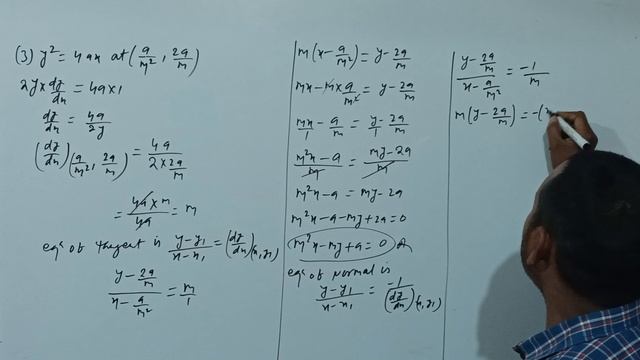 (3) y² = 4ax at (a/m², 2a/m)
2y × dy/dx = 4a×1
dy/dx = 4a/2y
(dy/dx)(a/m², 2a/m) = 4a/(2 × 2a/m)
= 4a × m/4a = m
eqⁿ of tangent is (y-y₁)/(x-x₁) = (dy/dx)(x₁, y₁)
(y - 2a/m)/(x - a/m²) = m/1
m(x - a/m²) = y - 2a/m
mx - m × a/m² = y - 2a/m
mx/1 - a/m = y/1 - 2a/m
(m²x - a)/m = (my - 2a)/m
m²x - a = my - 2a
m²x - a - my + 2a = 0
m²x - my + a = 0
eqⁿ of normal is
(y-y₁)/(x-x₁) = -1/(dy/dx)(x₁, y₁)
(y - 2a/m)/(x - a/m²) = -1/m
m(y - 2a/m) = -(x